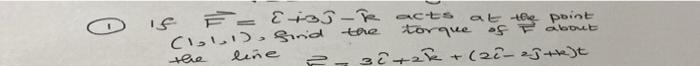 ① If F⃗ = î+3ĵ-k̂ acts at the point
(1,1,1), find the torque of F⃗ about
the line r⃗ = 3î+2k̂ + (2î-2ĵ+k̂)t